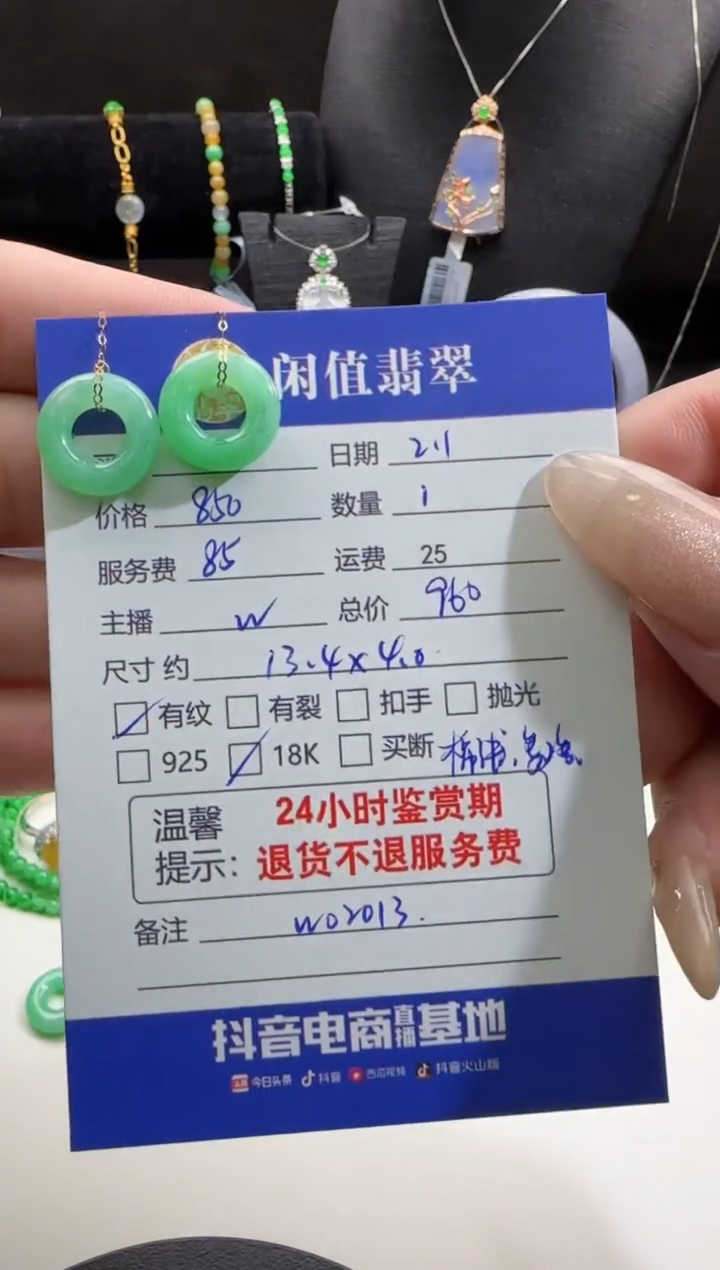 闲值翡翠
日期 2.1
价格 850 数量 1
服务费 85 运费 25
主播 W 总价 960
尺寸 约 13.4x4.0
有纹 有裂 扣手 抛光
925 18K 买断
温馨 24小时鉴赏期
提示: 退货不退服务费
备注 W02013.
抖音电商直播基地
今日头条 抖音 西瓜视频 抖音火山版